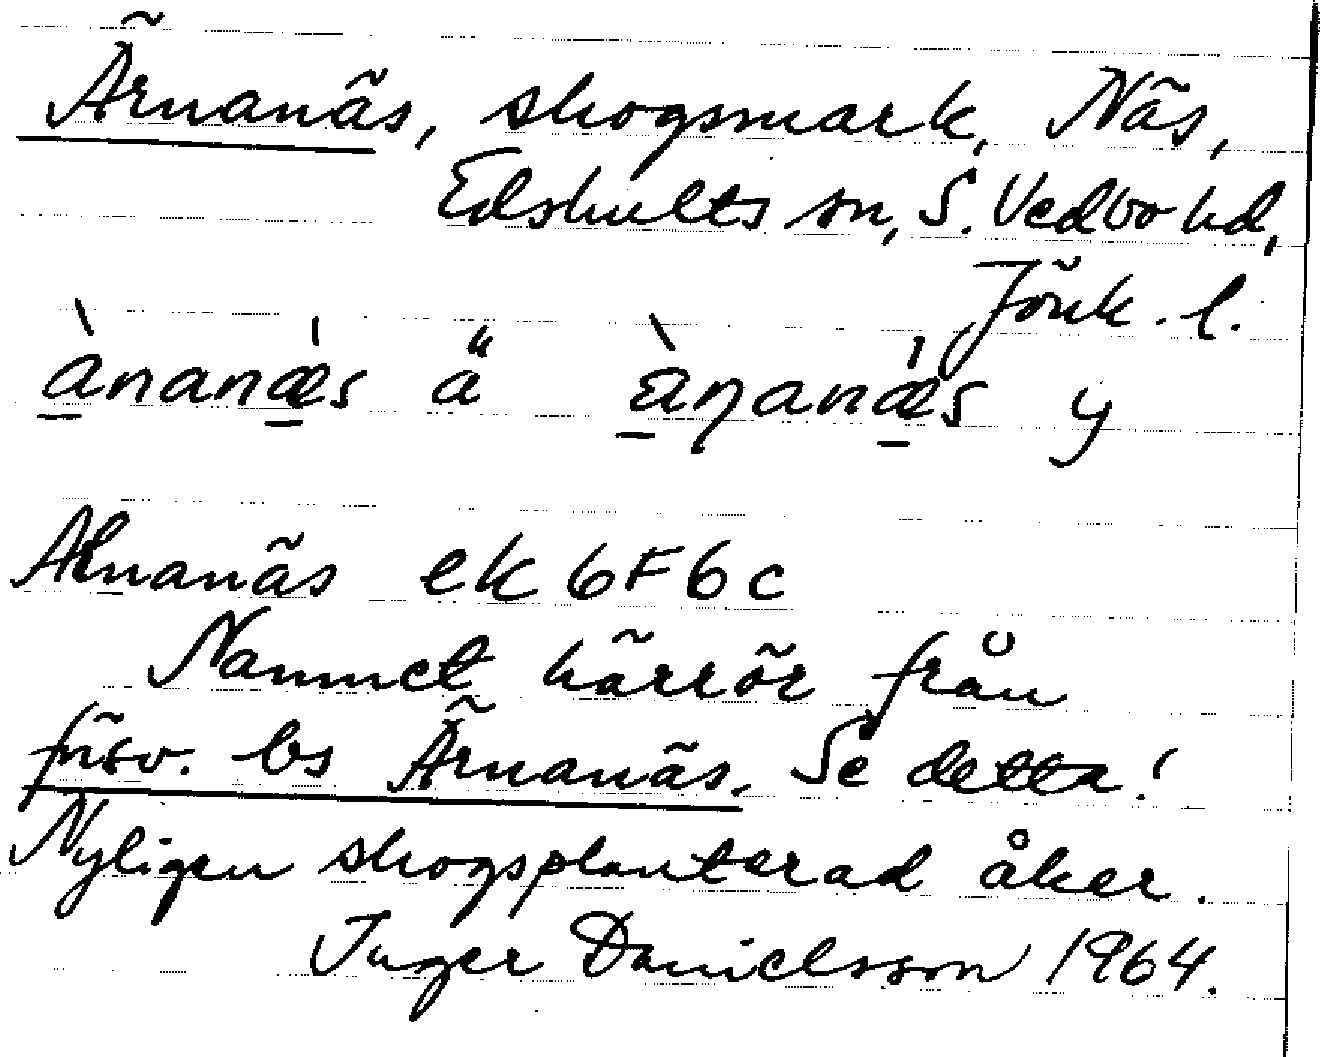 Ärnanäs, skogsmark, Näs,
Edshults sn, S. Vedbo hd,
Jönk. l.
ànanæ̀s ä̋ àɳanæ̀s y
Alnanäs ek 6F6c
Namnet härrör från
försv. bs Ärnanäs. Se detta!
Nyligen skogsplanterad åker.
Inger Danielsson 1964.